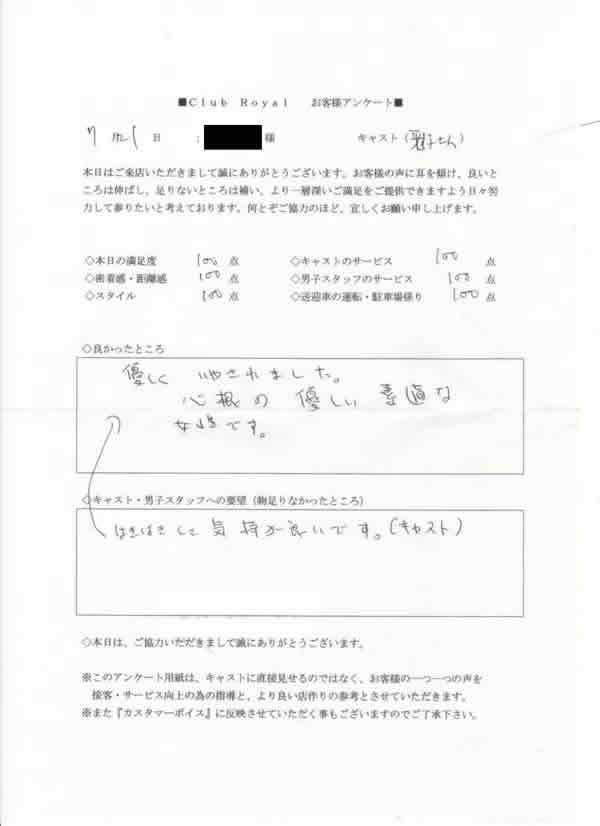 ■Club Royal お客様アンケート■
7月21日 : 様 キャスト(さん)
本日はご来店いただきまして誠にありがとうございます。お客様の声に耳を傾け、良いと
ころは伸ばし、足りないところは補い、より一層深いご満足をご提供できますよう日々努
力して参りたいと考えております。何とぞご協力のほど、宜しくお願い申し上げます。
◇本日の満足度 100 点 ◇キャストのサービス 100 点
◇密着感・距離感 100 点 ◇男子スタッフのサービス 100 点
◇スタイル 100 点 ◇送迎車の運転・駐車場係り 100 点
◇良かったところ
優しく いやされました。
心根の優しい素直な
女性です。
◇キャスト・男子スタッフへの要望(物足りなかったところ)
はきはきして気持が良いです。(キャスト)
◇本日は、ご協力いただきまして誠にありがとうございます。
※このアンケート用紙は、キャストに直接見せるのではなく、お客様の一つ一つの声を
接客・サービス向上の為の指導と、より良い店作りの参考とさせていただきます。
※また『カスタマーボイス』に反映させていただく事もございますのでご了承下さい。